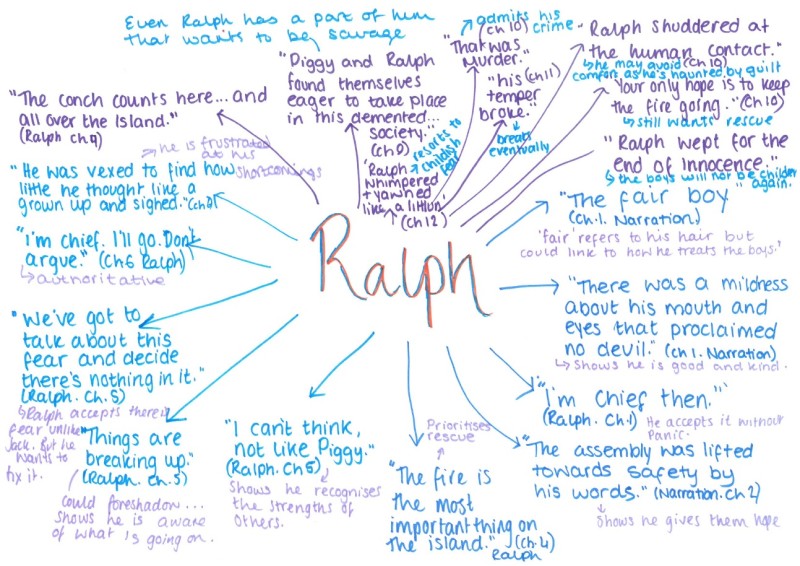 Even Ralph has a part of him
that wants to be savage
"Piggy and Ralph
found themselves
eager to take place
in this demented...
society..."
"The conch counts here... and
all over the Island."
(Ralph ch 9)
"That was
Murder."
(ch 10)
admits his
crime
"his (ch 11)
temper
broke."
breaks
eventually
'Ralph
whimpered
+ yawned
like a littlun'
(ch 12)
resorts to
childish
fear
Ralph shuddered at
the human contact."
(ch 10)
he may avoid
comfort as he's haunted by guilt
"Your only hope is to keep
the fire going." (Ch 10)
still wants rescue
"Ralph wept for the
end of innocence."
the boys will not be children
again.
"He was vexed to find how
little he thought like a
grown up and sighed."
he is frustrated
at his
shortcomings
"I'm chief. I'll go. Don't
argue." (Ch 6 Ralph)
authoritative
"We've got to
talk about this
fear and decide
there's nothing in it."
(Ralph. Ch. 5)
Ralph accepts there is
fear unlike
Jack. But he
wants to
fix it.
"Things are
breaking up."
(Ralph. ch. 5)
could foreshadow...
shows he is aware
of what is going on.
"I can't think,
not like Piggy."
(Ralph. Ch 5)
Shows he recognises
the strengths of
others.
Ralph
Prioritises
rescue
"The fire is
the most
important thing on
the island." (ch. 4)
Ralph
"The fair boy"
(Ch. 1. Narration)
'fair' refers to his hair but
could link to how he treats the boys.'
"There was a mildness
about his mouth and
eyes that proclaimed
no devil." (Ch 1. Narration)
Shows he is good and kind.
"I'm Chief then."
(Ralph. Ch. 1)
He accepts it without
panic.
"The assembly was lifted
towards safety by
his words." (Narration. Ch 2)
shows he gives them hope